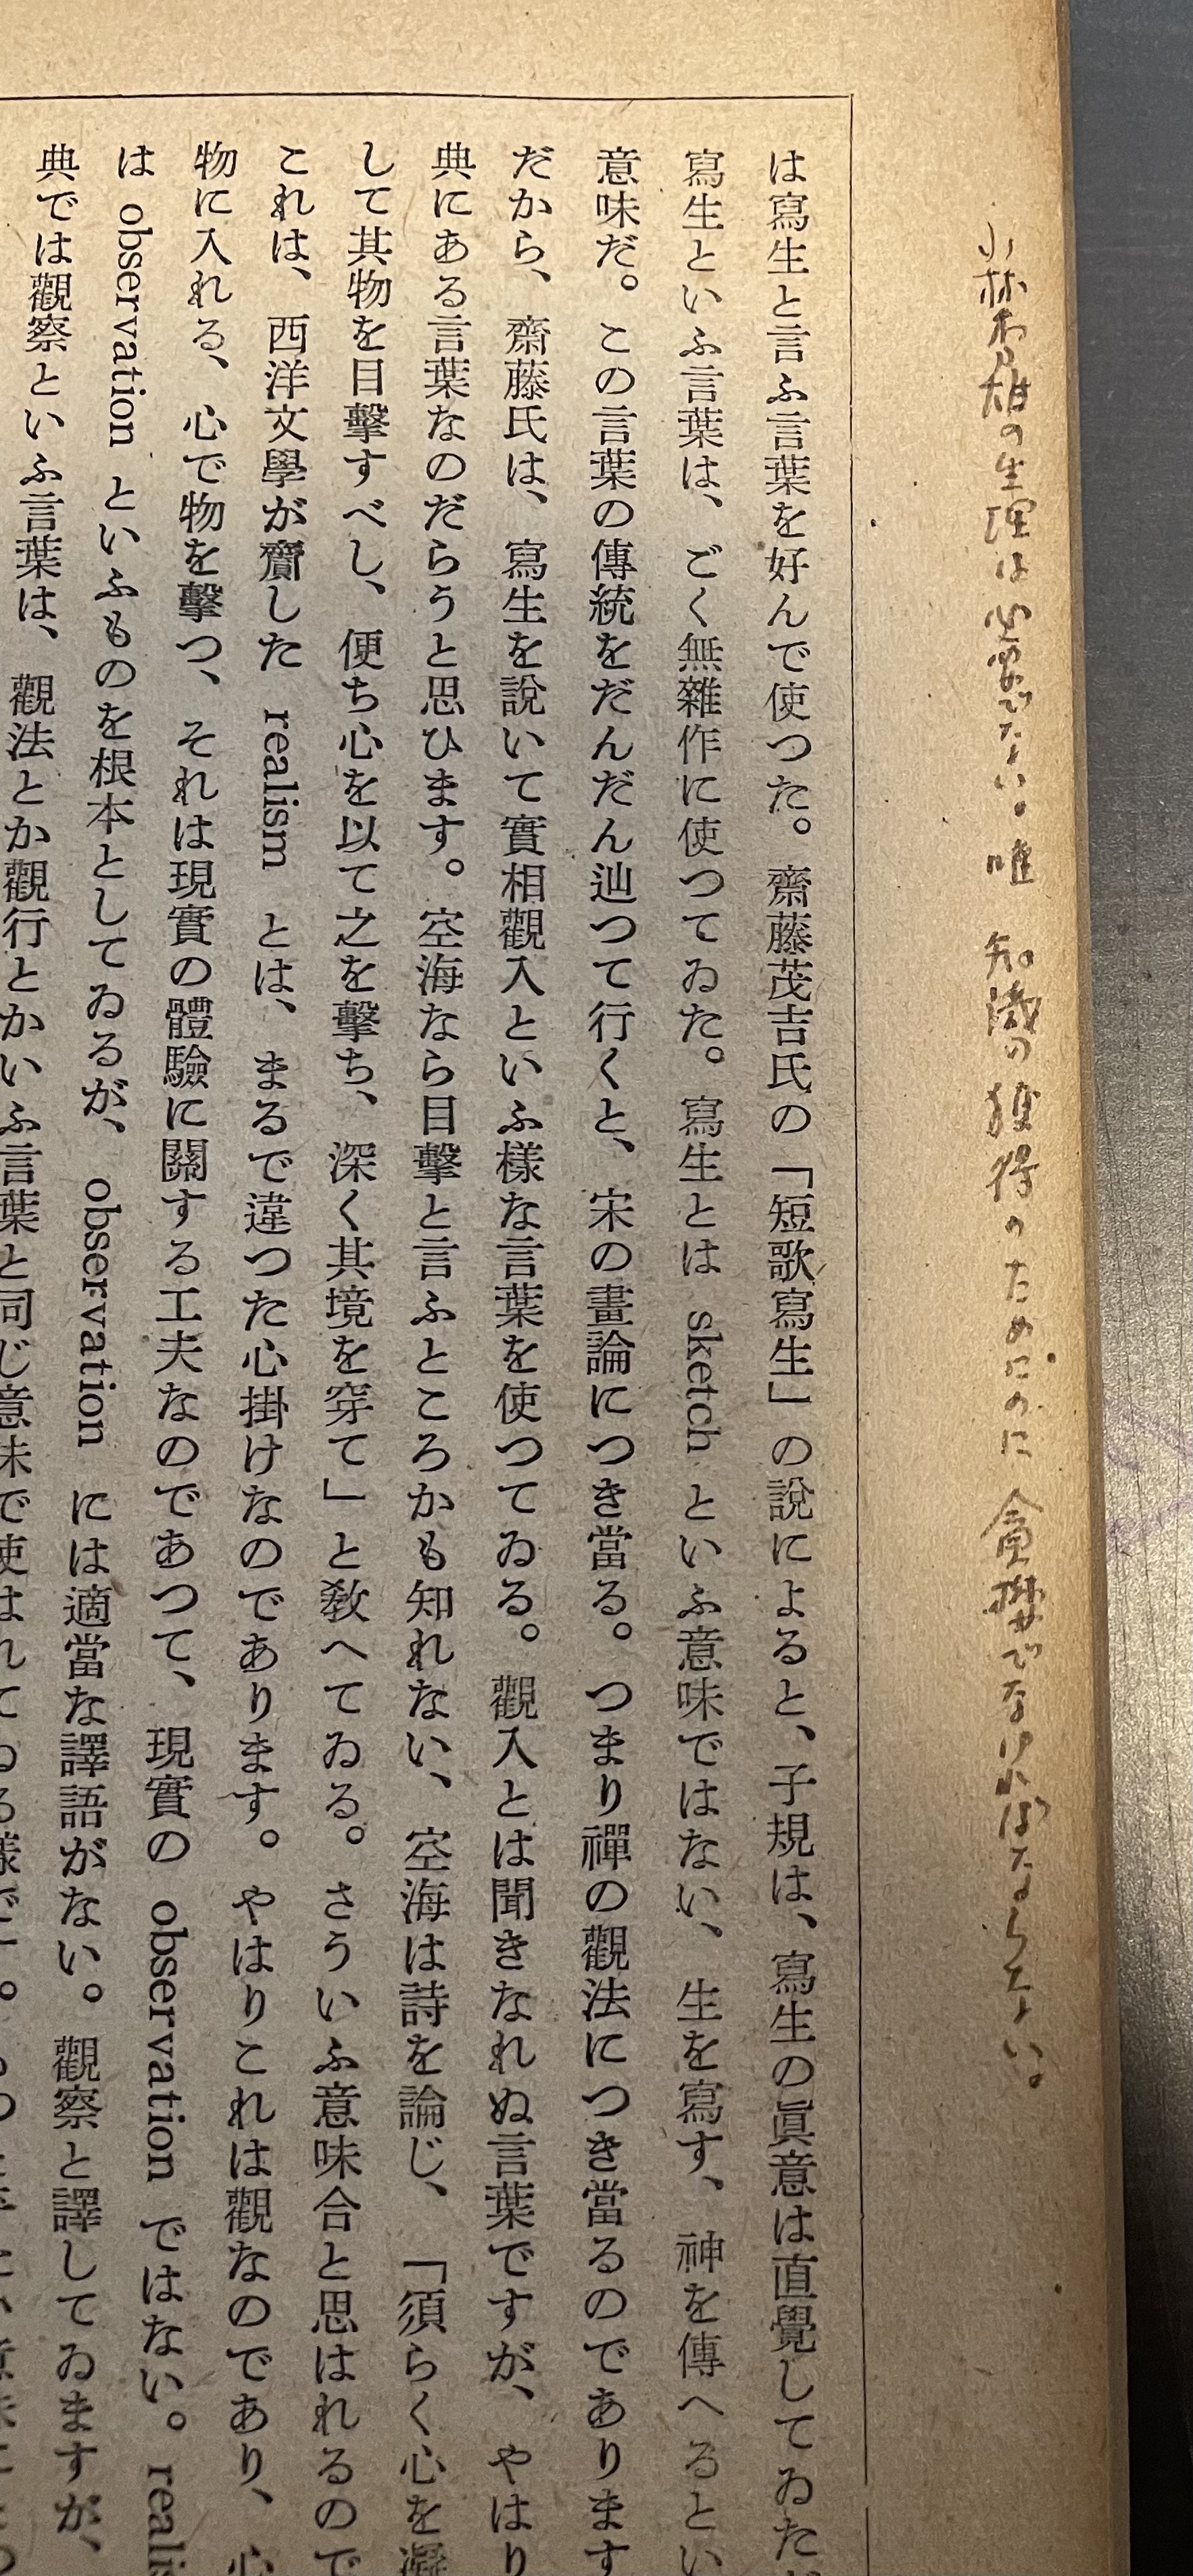 小林秀雄の生理は必要でない。唯 知識の獲得のためにのに貪婪でなければならない。
は寫生と言ふ言葉を好んで使つた。齋藤茂吉氏の「短歌寫生」の說によると、子規は、寫生の眞意は直覺してゐただ
寫生といふ言葉は、ごく無雜作に使つてゐた。寫生とは sketch といふ意味ではない、生を寫す、神を傳へるとい
意味だ。この言葉の傳統をだんだん辿つて行くと、宋の畫論につき當る。つまり禪の觀法につき當るのであります
だから、齋藤氏は、寫生を說いて實相觀入といふ樣な言葉を使つてゐる。觀入とは聞きなれぬ言葉ですが、やはり
典にある言葉なのだらうと思ひます。空海なら目擊と言ふところかも知れない、空海は詩を論じ、「須らく心を凝
して其物を目擊すべし、便ち心を以て之を擊ち、深く其境を穿て」と敎へてゐる。さういふ意味合と思はれるので
これは、西洋文學が齎した realism とは、まるで違つた心掛けなのであります。やはりこれは觀なのであり、心
物に入れる、心で物を擊つ、それは現實の體驗に關する工夫なのであつて、現實の observation ではない。reali
は observation といふものを根本としてゐるが、observation には適當な譯語がない。觀察と譯してゐますが、
典では觀察といふ言葉は、觀法とか觀行とかいふ言葉と同じ意味で使はれてゐる樣です。